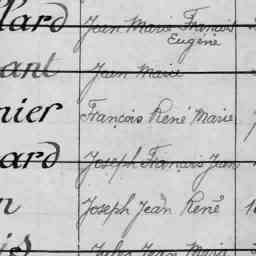 llard Jean Marie François
Eugène
ant Jean Marie
nier François René Marie
ard Joseph François Jean
n Joseph Jean René
is Jules Jean Marie